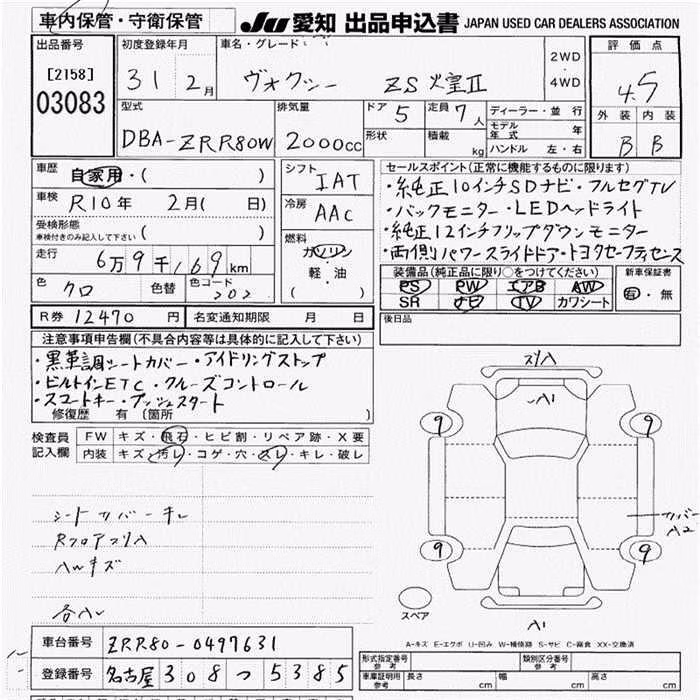 車内保管・守衛保管
JU 愛知 出品申込書 JAPAN USED CAR DEALERS ASSOCIATION
出品番号
[2158]
03083
初度登録年月
31 2月
車名・グレード
ヴォクシー ZS 煌Ⅱ
2WD
・
4WD
評価点
4.5
外装 内装
B B
型式
DBA-ZRR80W
排気量
2000cc
ドア 5
定員 7人
形状
積載 kg
ディーラー・並行
モデル年式 年
ハンドル 左・右
車歴 自家用・( )
車検 R10年 2月( 日)
受検形態
車検付きのみ記入して下さい ( )
走行 6万9千169km
色 クロ 色替 色コード 202
シフト
IAT
冷房
AAC
燃料
ガソリン
軽・油
( )
セールスポイント(正常に機能するものに限ります)
・純正10インチSDナビ・フルセグTV
・バックモニター・LEDヘッドライト
・純正12インチフリップダウンモニター
・両側パワースライドドア・トヨタセーフティセンス
装備品(純正品に限り○をつけてください)
PS PW エアB AW
SR ナビ TV カワシート
新車保証書
有・無
R券 12470円 名変通知期限 月 日
後日品
注意事項申告欄(不具合内容等は具体的に記入して下さい)
・黒革調シートカバー・アイドリングストップ
・ビルトインETC・クルーズコントロール
・スマートキー・プッシュスタート
修復歴 有 〔箇所 〕
検査員
記入欄
FW キズ・飛石・ヒビ割・リペア跡・X要
内装 キズ・汚レ・コゲ・穴・スレ・キレ・破レ
シートカバーキレ
RフロアフリA
ハンキズ
各ハレ
A1
9
9
9
9
カバー
A2
スペア
A1
A-キズ E-エクボ U-凹み W-補修跡 S-サビ C-腐食 XX-交換済
車台番号 ZRR80-0497631
登録番号 名古屋 308 つ 5385
形式指定番号
参考
類別区分番号
参考
車庫証明用
参考
長さ cm 幅 cm 高さ cm